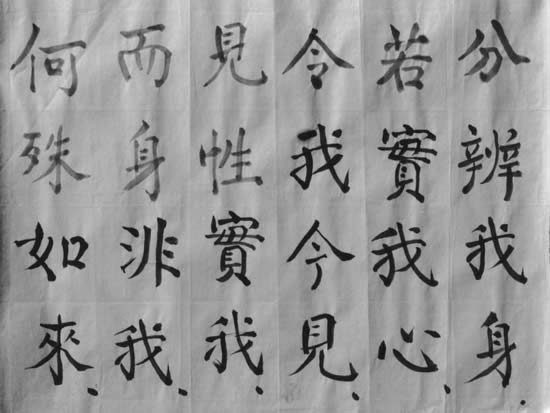 分辨我身.
若實我心.
令我今見.
見性實我.
而身非我.
何殊如來.